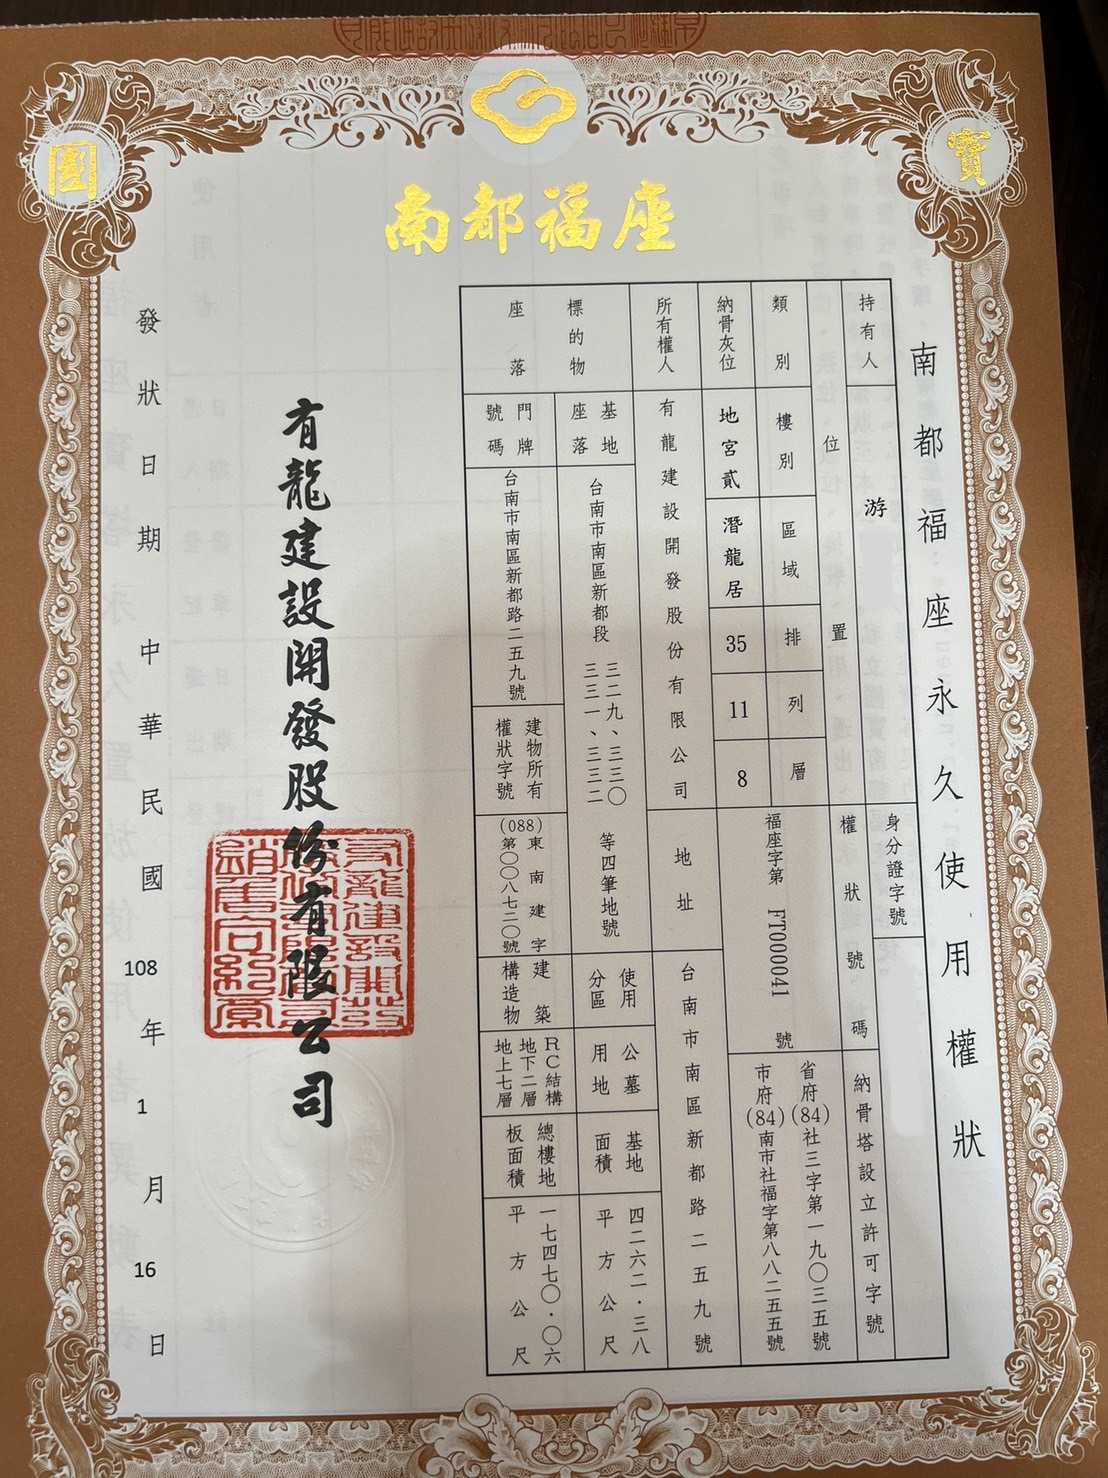 國
寶
南都福座
南都福座永久使用權狀
持有人
游
身分證字號
位置
權狀號碼
納骨塔設立許可字號
類別
樓別
區域
排
列
層
福座字第 FT000041 號
省府(84)社三字第一九〇三五號
市府(84)南市社福字第八八二五五號
納骨灰位
地宮貳
潛龍居
35
11
8
所有權人
有龍建設開發股份有限公司
地址
台南市南區新都路二五九號
標的物
座落
基地
座落
台南市南區新都段
三二九、三三〇
三三一、三三二
等四筆地號
使用
分區
公墓
用地
基地
面積
四二六二.三八
平方公尺
門牌
號碼
台南市南區新都路二五九號
建物所有
權狀字號
(088)東南建字
第〇〇八七二〇號
建築
構造物
RC結構
地下二層
地上七層
總樓地
板面積
一七四七〇.〇六
平方公尺
有龍建設開發股份有限公司
發狀日期 中華民國 108 年 1 月 16 日